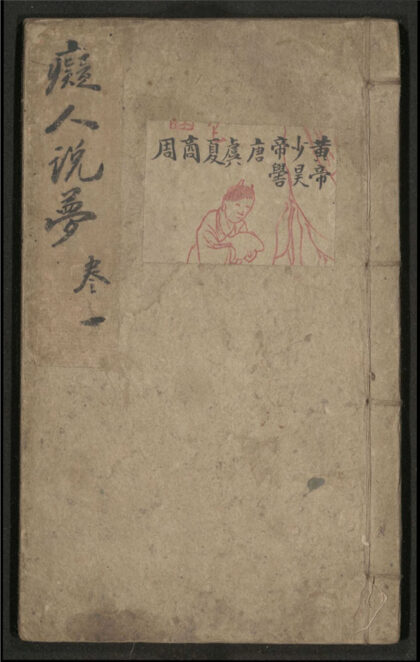 癡人說夢
卷一
黄帝
少昊
帝嚳
唐
虞
夏
商
周